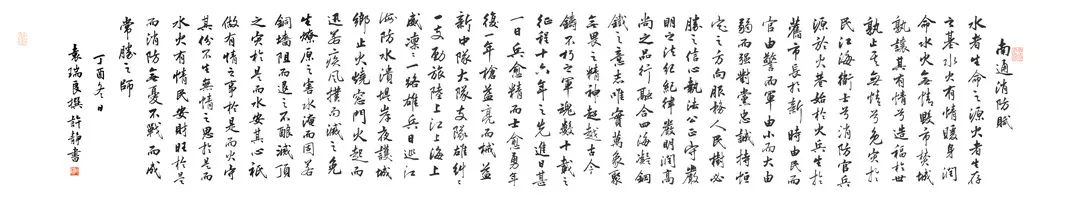 南通消防賦
水者生命之源火者生存
之基水火有情睦身润
命水火無情毁市焚城
孰讓其有情兮造福於世
孰止其無情兮免灾於
民江海衛士兮消防官兵
源於火巷始於火兵生於
舊市長於新時由民而
官由警而軍由小而大由
弱而强對黨忠誠持恒
定之方向服務人民樹必
勝之信心執法公正守嚴
明之法紀紀律嚴明润高
尚之品行融合四海凝鋼
鐵之意志唯實萬象聚
無畏之精神超越古今
鑄不朽之軍魂數十載之
征程十六年之先進日甚
一日兵愈精而士愈勇年
復一年槍益亮而城益
新中隊大隊支隊雄糾糾
一支勁旅陸上江上海上
威凛凛一路雄兵日巡江
海防水潰堤岸夜護城
鄉止火燒窓門火起而
迅若疾風撲而滅之免
生燎原之害水淹而固若
銅墙阻而退之不酿滅頂
之灾於是而水安其心祇
做有情之事於是而火守
其份不生無情之思於是而
水火有情民安財旺於是
而消防無憂不戰而成
常勝之師
丁酉冬日
袁瑞良撰 許静書